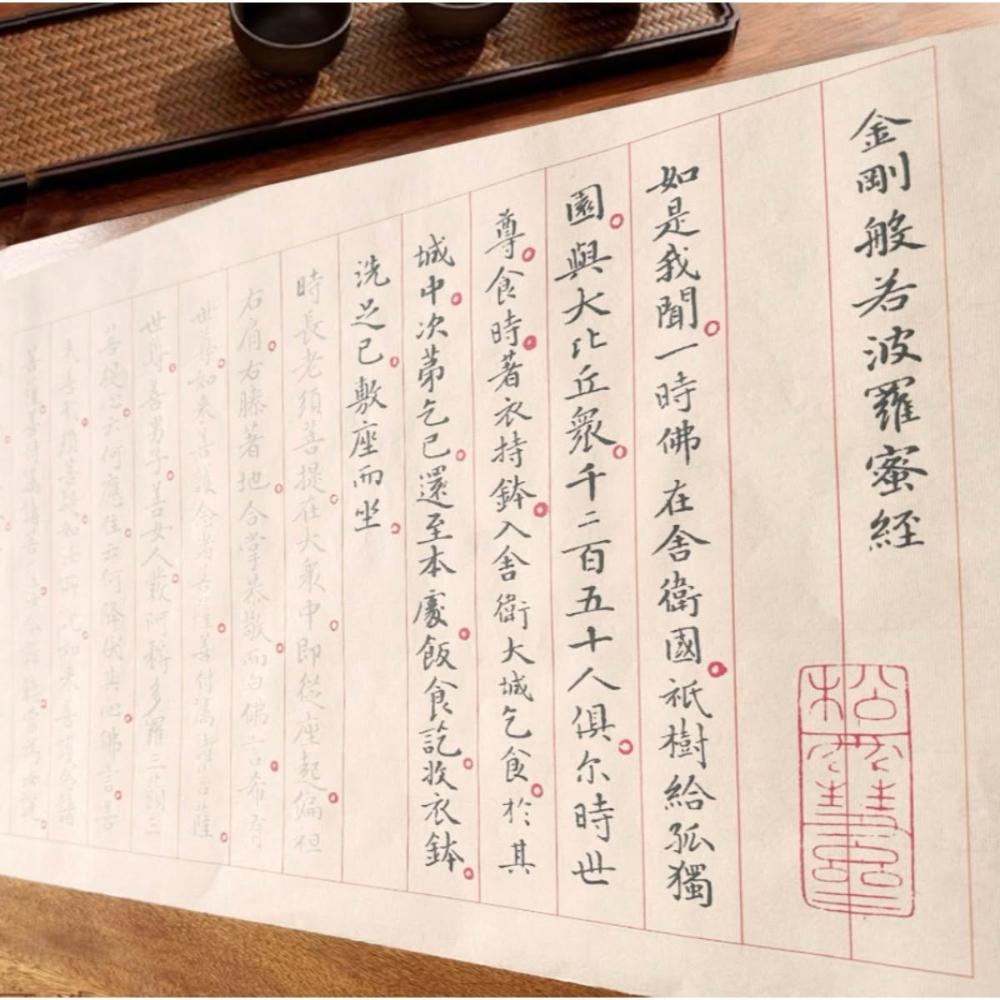 金剛般若波羅蜜經
如是我聞一時佛在舍衛國祇樹給孤獨
園與大比丘衆千二百五十人俱尔時世
尊食時著衣持鉢入舍衛大城乞食於其
城中次第乞已還至本處飯食訖收衣鉢
洗足已敷座而坐
時長老須菩提在大衆中即從座起偏袒
右肩右膝著地合掌恭敬而白佛言希有
世尊如來善護念諸菩薩善付囑諸菩薩
世尊善男子善女人發阿耨多羅三藐三
菩提心云何應住云何降伏其心佛言善